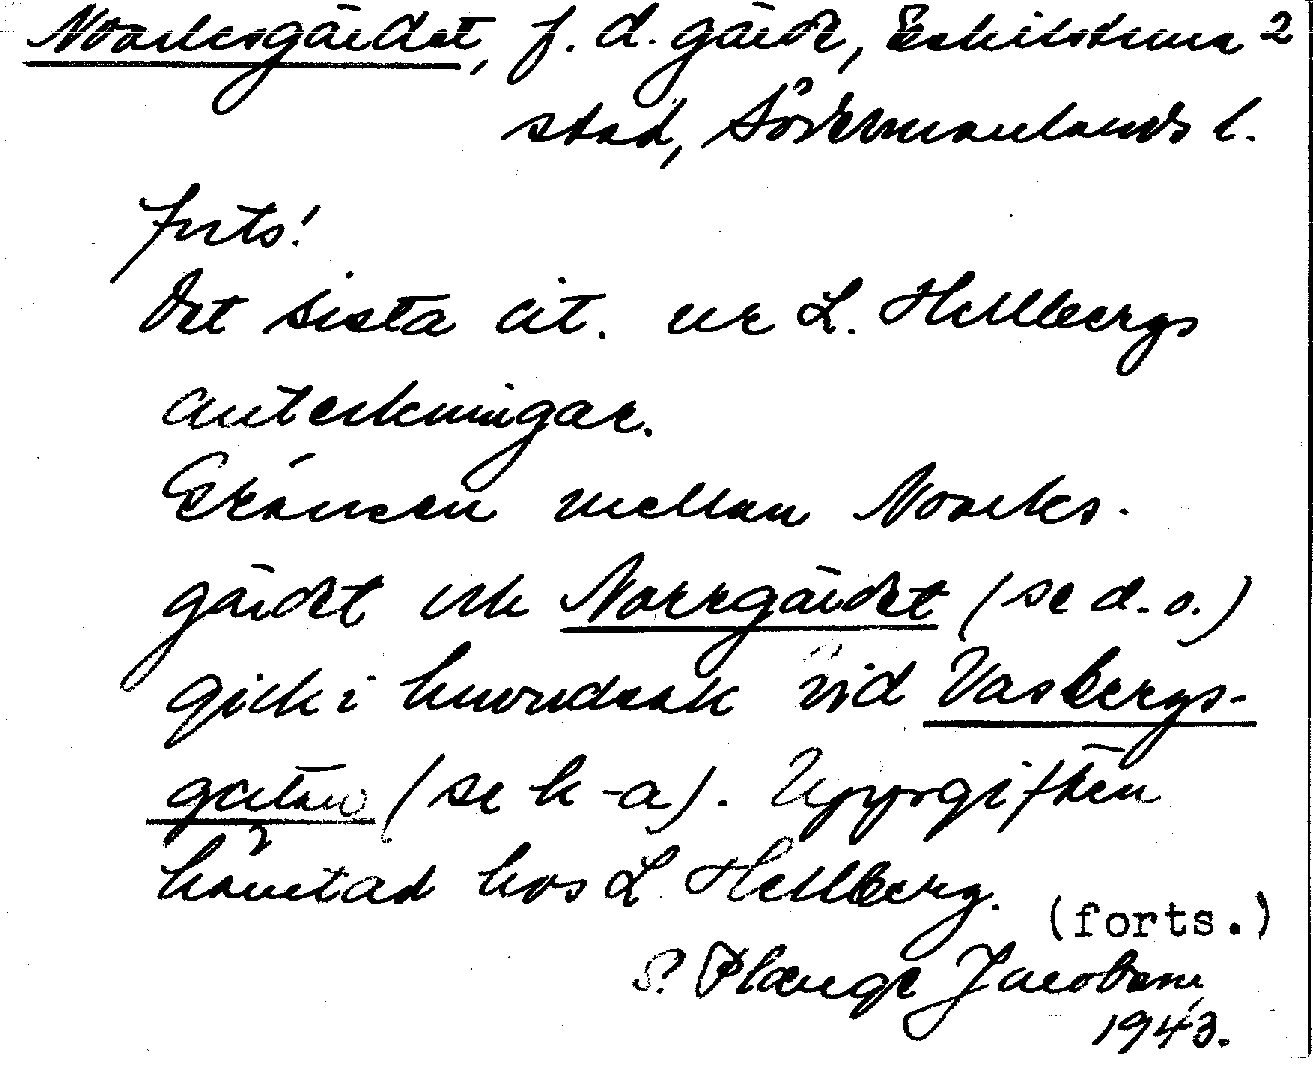 Noaksgärdet, f. d. gärde, Eskilstuna 2
stad, Södermanlands l.
forts!
Det sista cit. ur L. Hellbergs
anteckningar.
Gränsen mellan Noaks-
gärdet och Norrgärdet (se d. o.)
gick i huvudsak vid Vasbergs-
gatan (se h-a). Uppgiften
hämtad hos L Hellberg.
(forts.)
S. Plænge Jacobson
1943.